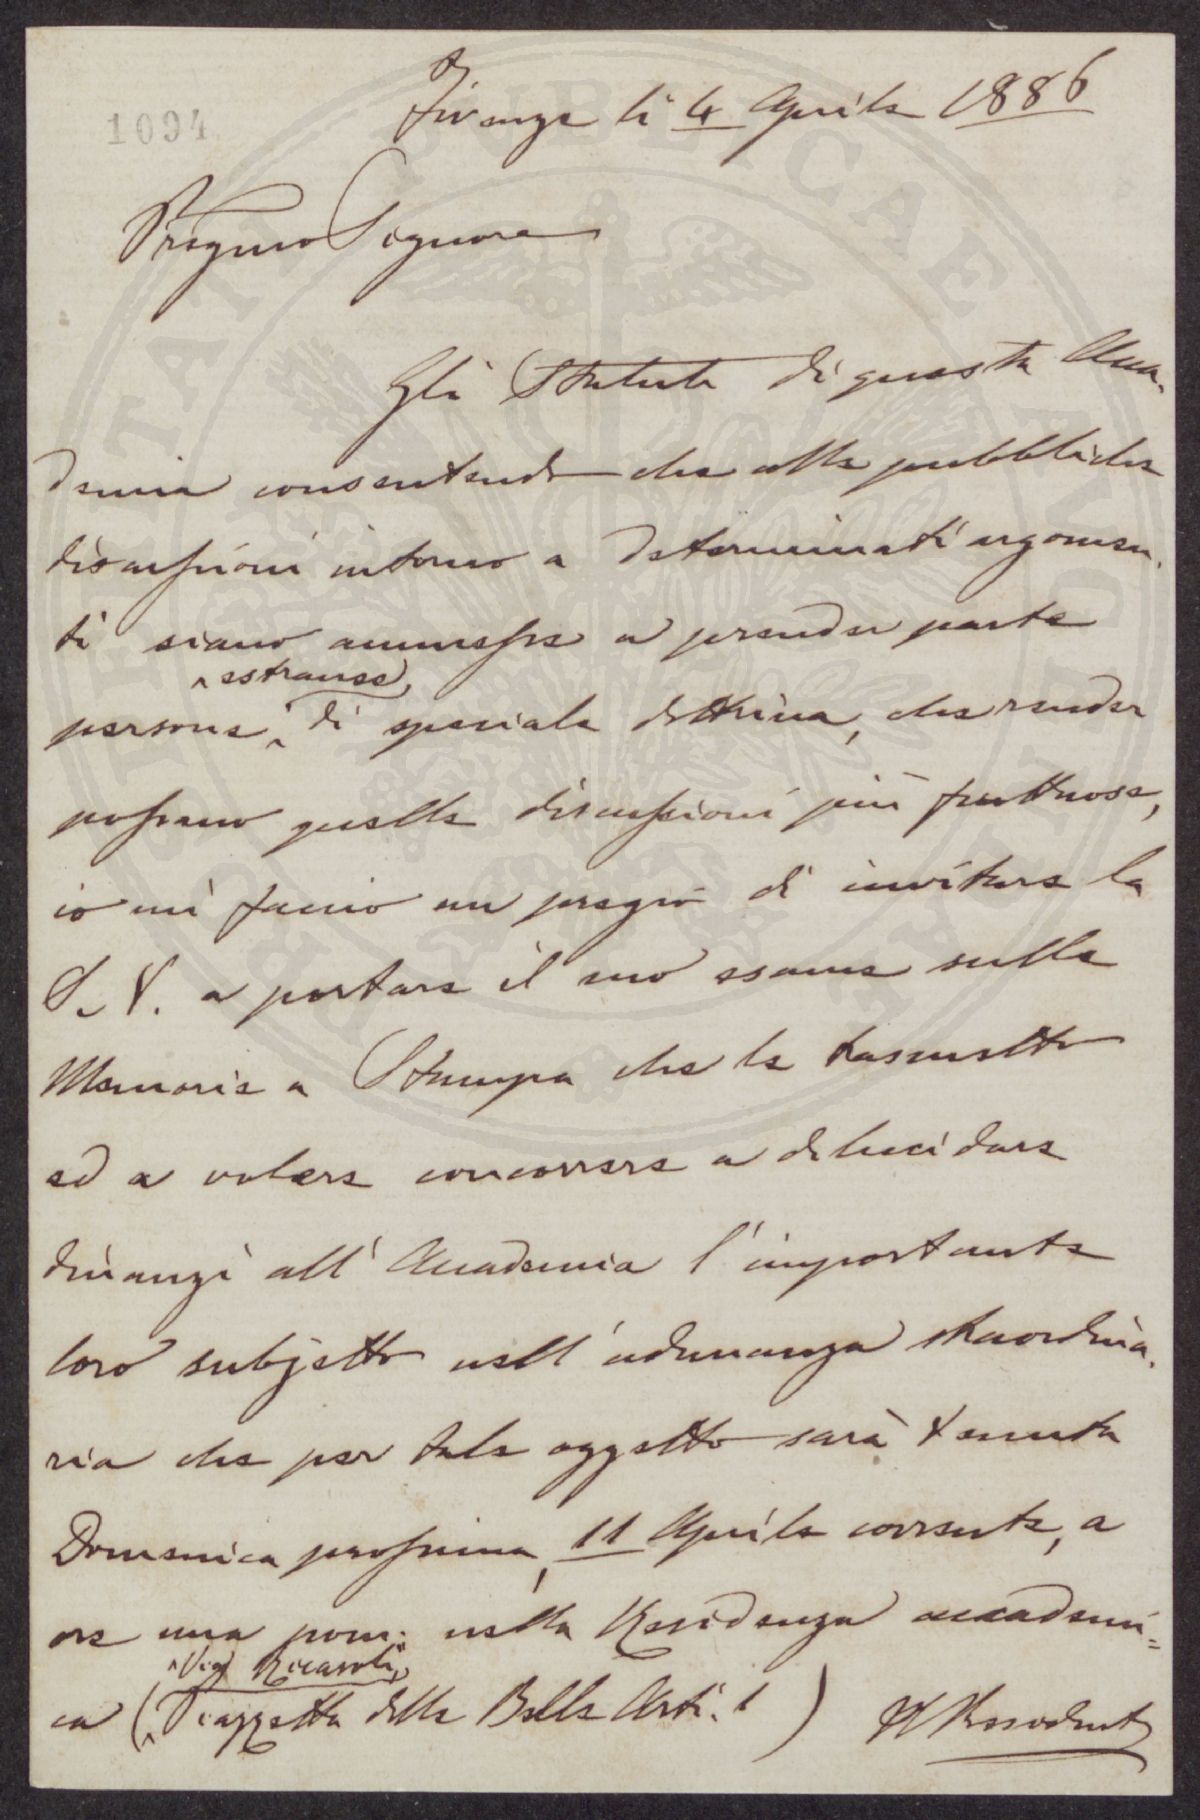 1094
Firenze li 4 Aprile 1886
Pregmo Signore
Gli Statuti di questa Acca-
demia consentendo che alle pubbliche
discussioni intorno a determinati argomen-
ti siano ammesse a prender parte
persone, estranee, di speciale dottrina, che render
possano quelle discussioni più fruttuose,
io mi faccio un pregio di invitare la
S. V. a portare il suo esame sulle
Memorie a Stampa che le trasmetto
ed a volere concorrere a dilucidare
dinanzi all'Accademia l'importante
loro subjetto nell'adunanza straordina-
ria che per tale oggetto sarà tenuta
Domenica prossima, 11 Aprile corrente, a
ore una pom: nella Residenza accademi=
ca (Via Ricasoli, Piazzetta delle Belle Arti. 1) Il Presidente